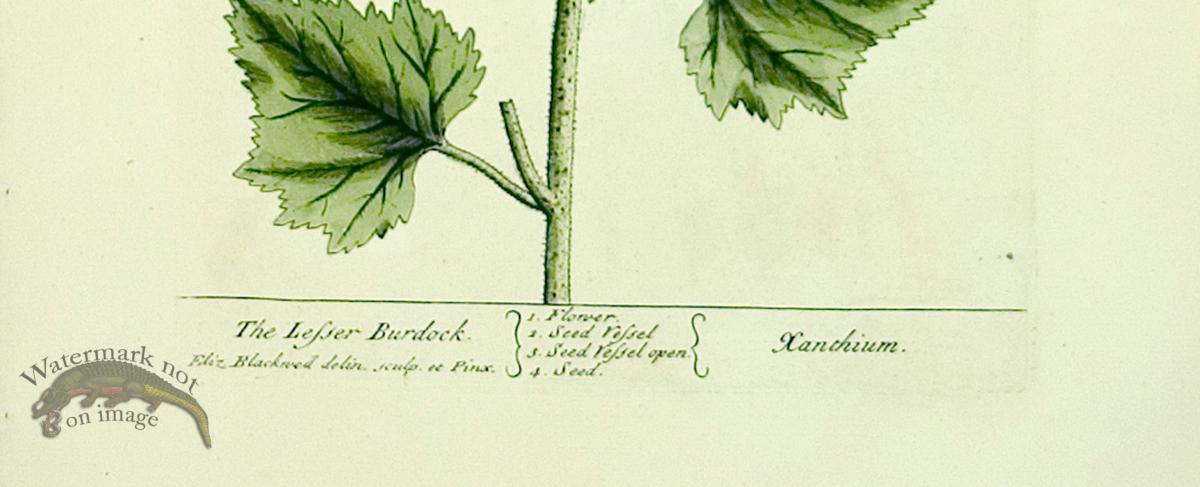 The Leſser Burdock.
Eliz. Blackwell delin. sculp. et Pinx.
1. Flower.
2. Seed Veſsel
3. Seed Veſsel open.
4. Seed.
Xanthium.
Watermark not
on image